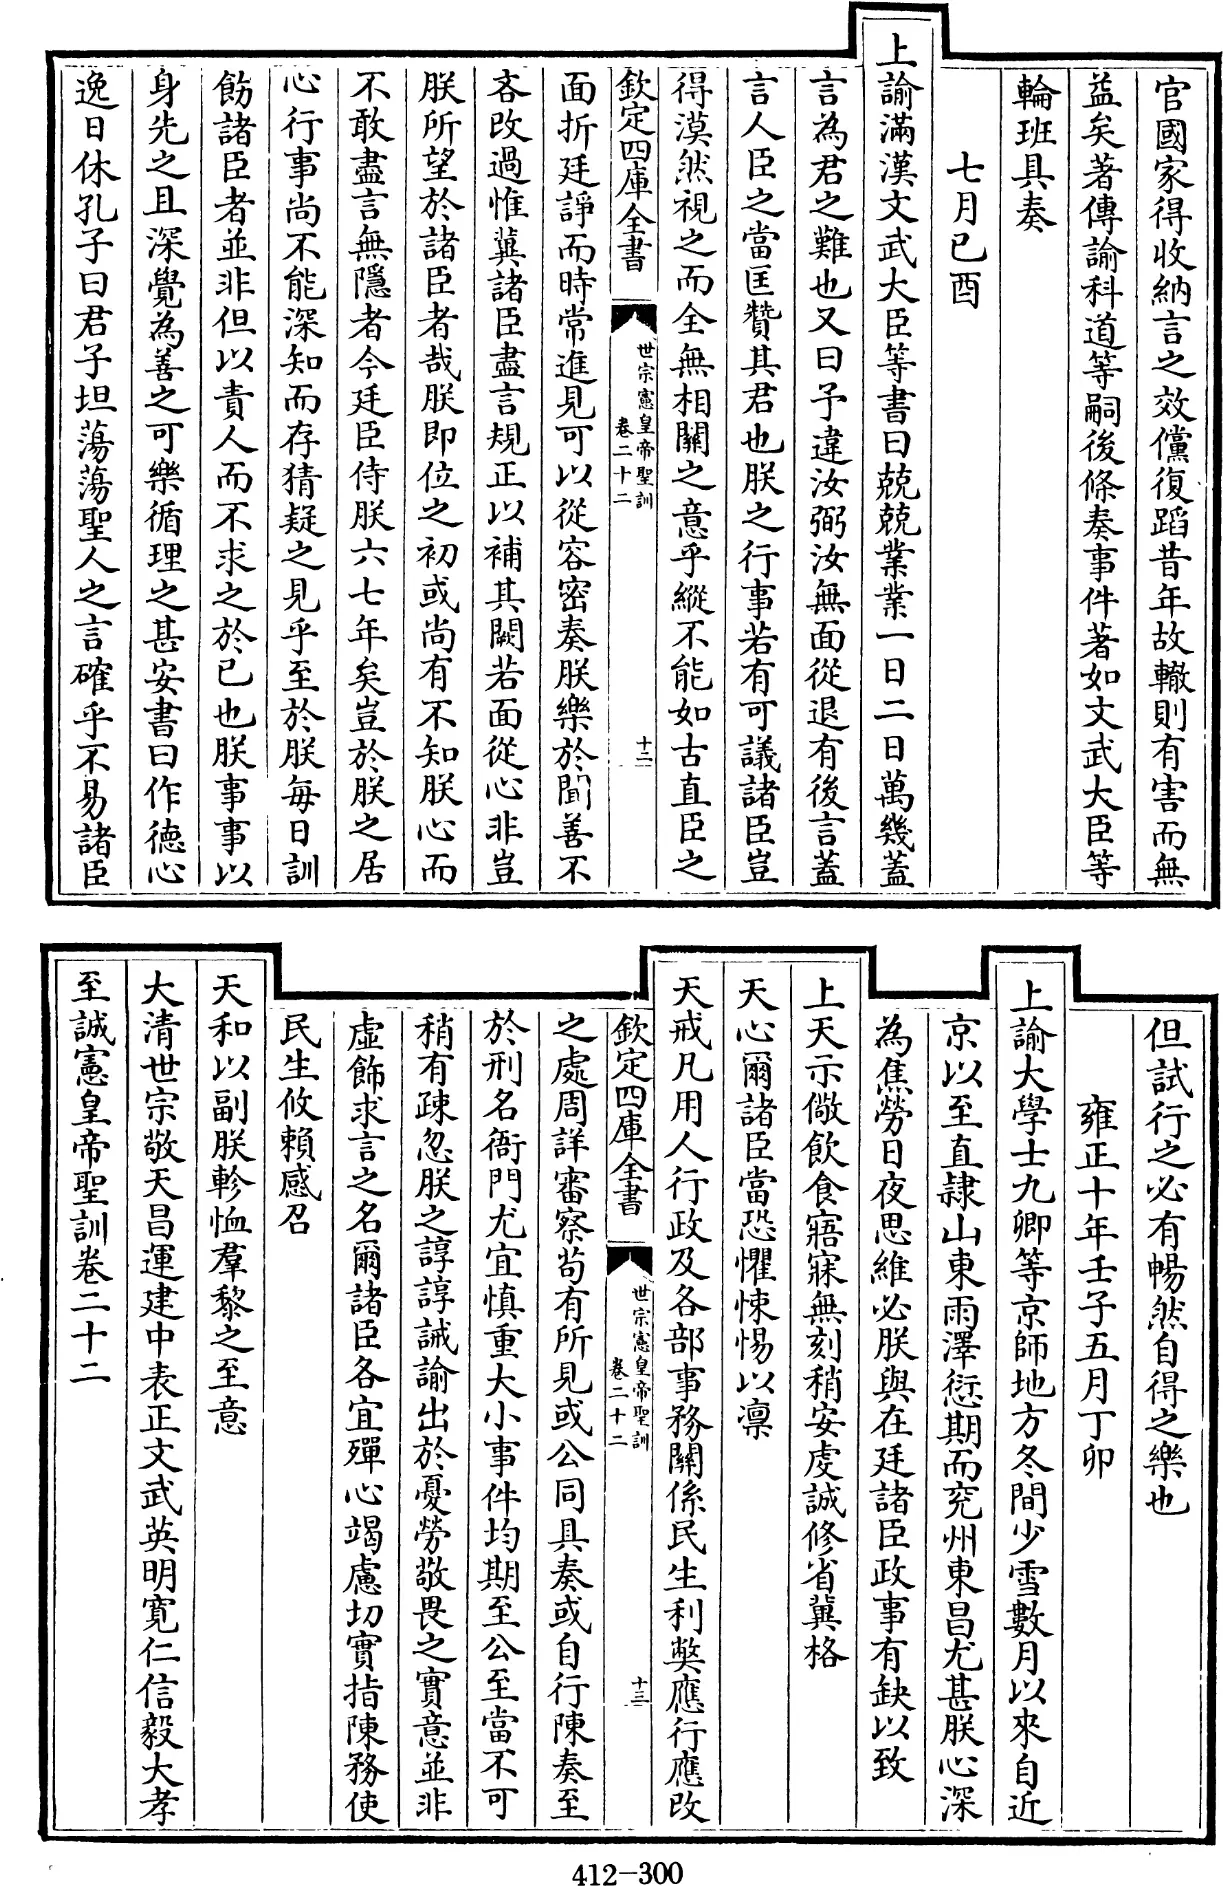 官國家得收納言之效儻復蹈昔年故轍則有害而無
益矣著傳諭科道等嗣後條奏事件著如文武大臣等
輪班具奏
七月已酉
上諭滿漢文武大臣等書曰兢兢業業一日二日萬幾蓋
言為君之難也又曰予違汝弼汝無面從退有後言蓋
言人臣之當匡贊其君也朕之行事若有可議諸臣豈
得漠然視之而全無相關之意乎縱不能如古直臣之
欽定四庫全書
世宗憲皇帝聖訓
卷二十二
十二
面折廷諍而時常進見可以從容密奏朕樂於聞善不
吝改過惟冀諸臣盡言規正以補其闕若面從心非豈
朕所望於諸臣者哉朕即位之初或尚有不知朕心而
不敢盡言無隱者今廷臣侍朕六七年矣豈於朕之居
心行事尚不能深知而存猜疑之見乎至於朕每日訓
飭諸臣者並非但以責人而不求之於已也朕事事以
身先之且深覺為善之可樂循理之甚安書曰作德心
逸日休孔子曰君子坦蕩蕩聖人之言確乎不易諸臣
但試行之必有暢然自得之樂也
雍正十年壬子五月丁卯
上諭大學士九卿等京師地方冬間少雪數月以來自近
京以至直隷山東雨澤愆期而兖州東昌尤甚朕心深
為焦勞日夜思維必朕與在廷諸臣政事有缺以致
上天示儆飲食寤寐無刻稍安虔誠修省冀格
天心爾諸臣當恐懼悚惕以凛
天戒凡用人行政及各部事務關係民生利弊應行應改
欽定四庫全書
世宗憲皇帝聖訓
卷二十二
十三
之處周詳審察茍有所見或公同具奏或自行陳奏至
於刑名衙門尤宜慎重大小事件均期至公至當不可
稍有疎忽朕之諄諄誡諭出於憂勞敬畏之實意並非
虛飾求言之名爾諸臣各宜殫心竭慮切實指陳務使
民生攸賴感召
天和以副朕軫恤羣黎之至意
大清世宗敬天昌運建中表正文武英明寬仁信毅大孝
至誠憲皇帝聖訓卷二十二
412-300